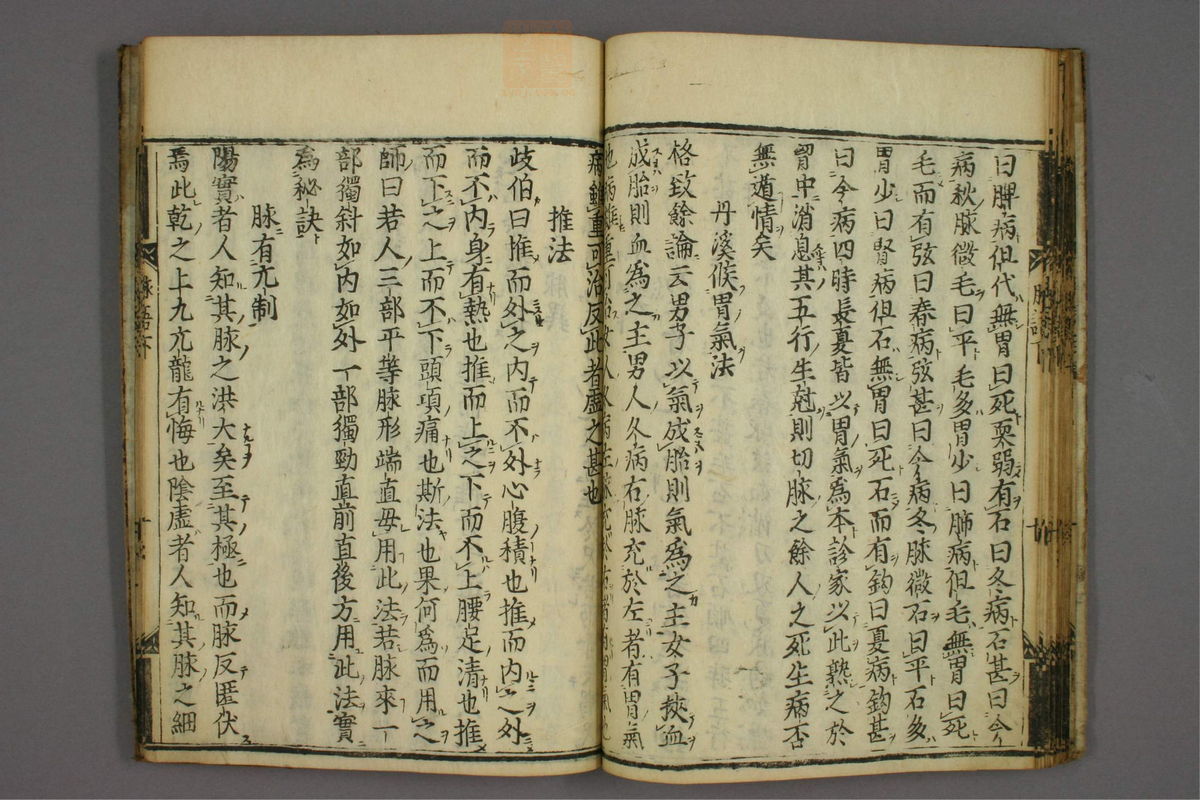 曰脾病但代無胃曰死耎弱有石曰冬病石甚曰今
病秋脉微毛曰平毛多胃少曰肺病但毛無胃曰死
毛而有弦曰春病弦甚曰今病冬脉微石曰平石多
胃少曰腎病但石無胃曰死石而有鈎曰夏病鈎甚
曰今病四時長夏皆以胃氣為本診家以此熟之於
胃中消息其五行生尅則切脉之餘人之死生病否
無遁情矣
丹溪候胃氣法
格致餘論云男子以氣成胎則氣為之主女子挾血
成胎則血為之主男人久病右脉充於左者有胃氣
也病雖重可治
病雖重可治反此者虛之甚也
推法
歧伯曰推而外之内而不外心腹積也推而内之外
而不内身有熱也推而上之下而不上腰足清也推
而下之上而不下頭項痛也斯法也果何為而用之
師曰若人三部平等脉形端直毋用此法若脉來一
部獨斜如内如外一部獨勁直前直後方用此法實
為秘訣
脉有亢制
陽實者人知其脉之洪大矣至其極也而脉反匿伏
焉此乾之上九亢龍有悔也陰虛者人知其脉之細
脉語下